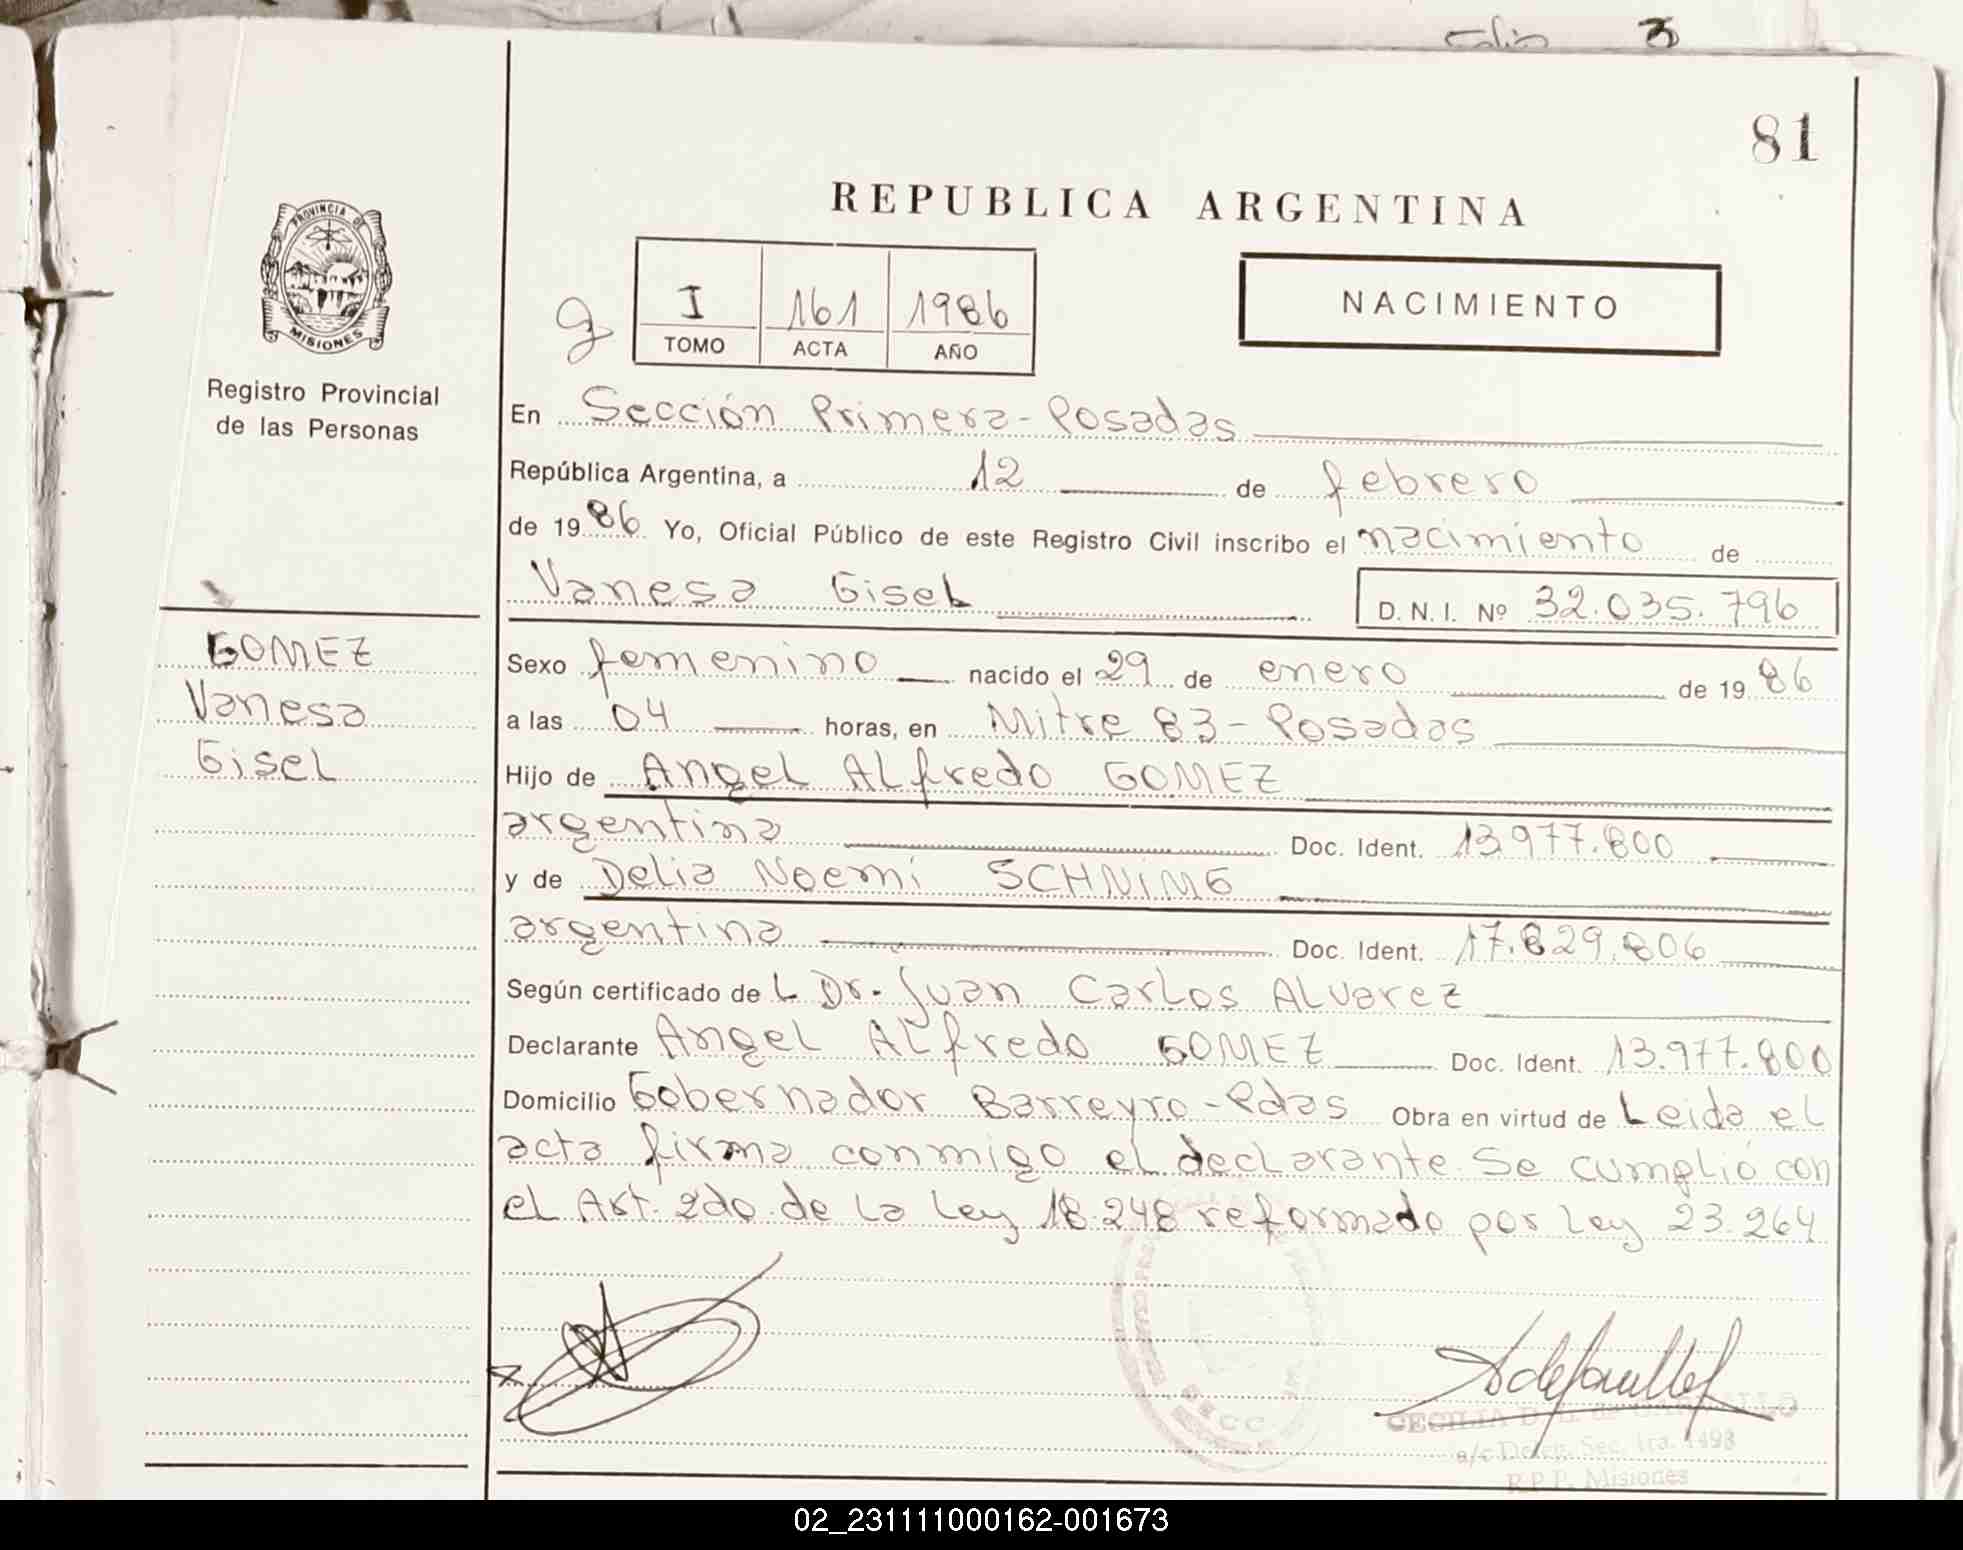 Folio 3
81
REPUBLICA ARGENTINA
PROVINCIA DE
MISIONES
Registro Provincial
de las Personas
I 161 1986
TOMO ACTA AÑO
NACIMIENTO
En Sección Primera - Posadas
República Argentina, a 12 de febrero
de 1986 Yo, Oficial Público de este Registro Civil inscribo el nacimiento de
Vanesa Gisel D. N. I. Nº 32.035.796
GOMEZ
Vanesa
Gisel
Sexo femenino nacido el 29 de enero de 1986
a las 04 horas, en Mitre 83 - Posadas
Hijo de Angel Alfredo GOMEZ
argentina Doc. Ident. 13.977.800
y de Delia Noemi SCHNIMG
argentina Doc. Ident. 17.829.806
Según certificado del Dr. Juan Carlos Alvarez
Declarante Angel Alfredo GOMEZ Doc. Ident. 13.977.800
Domicilio Gobernador Barreyro - Pdas Obra en virtud de Leida el
acta firma conmigo el declarante. Se cumplió con
el Art. 2do. de la Ley 18.248 reformado por Ley 23.264
CECILIA D.
a/c Deleg. Sec. 1ra. 1493
R.P.P. Misiones
02_231111000162-001673